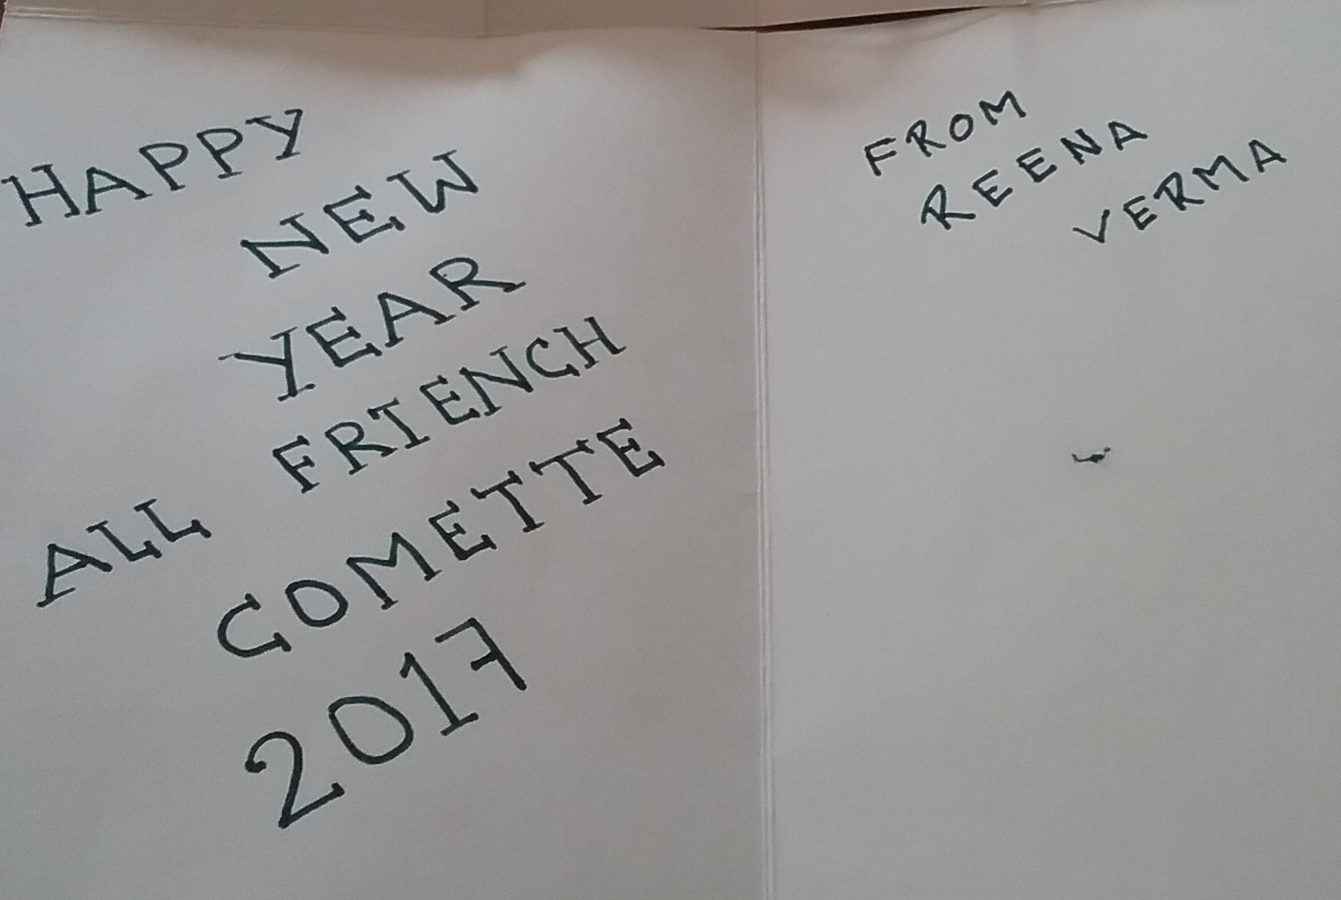 HAPPY
NEW
YEAR
ALL FRIENCH
COMETTE
2017
FROM
REENA
VERMA